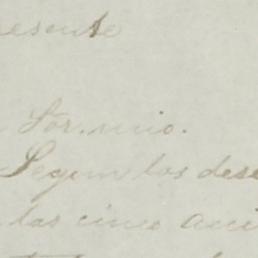 resente
Sor. mio.
Segun los dese
las cinco acci